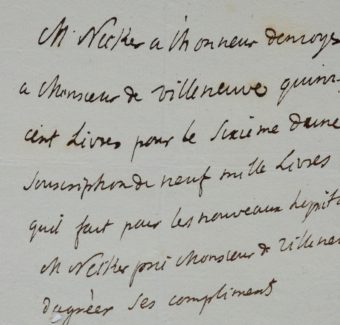 M. Necker a l'honneur d'envoye
a Monsieur de Villeneuve quinz
cent Livres pour le Sixième d'une
Souscription de neuf mille Livres
quil fait pour les nouveaux hopita
M Necker prie Monsieur de Villeneu
d'agréer Ses compliments